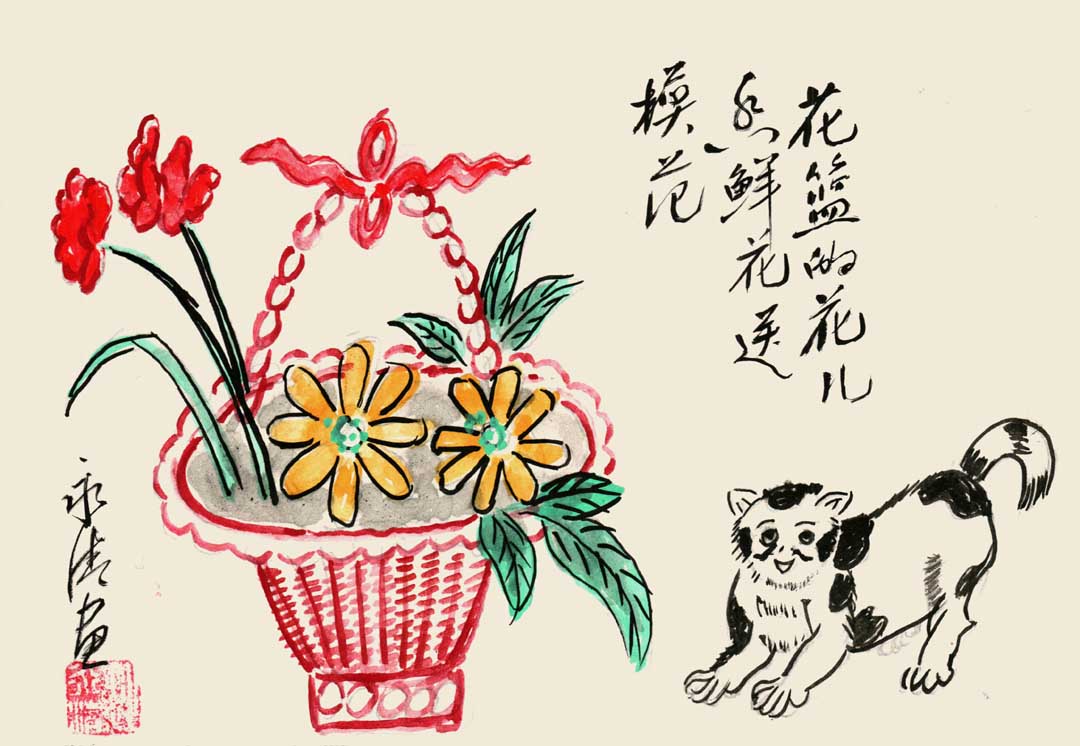 花篮的花儿
香鲜花送
模范
永清画